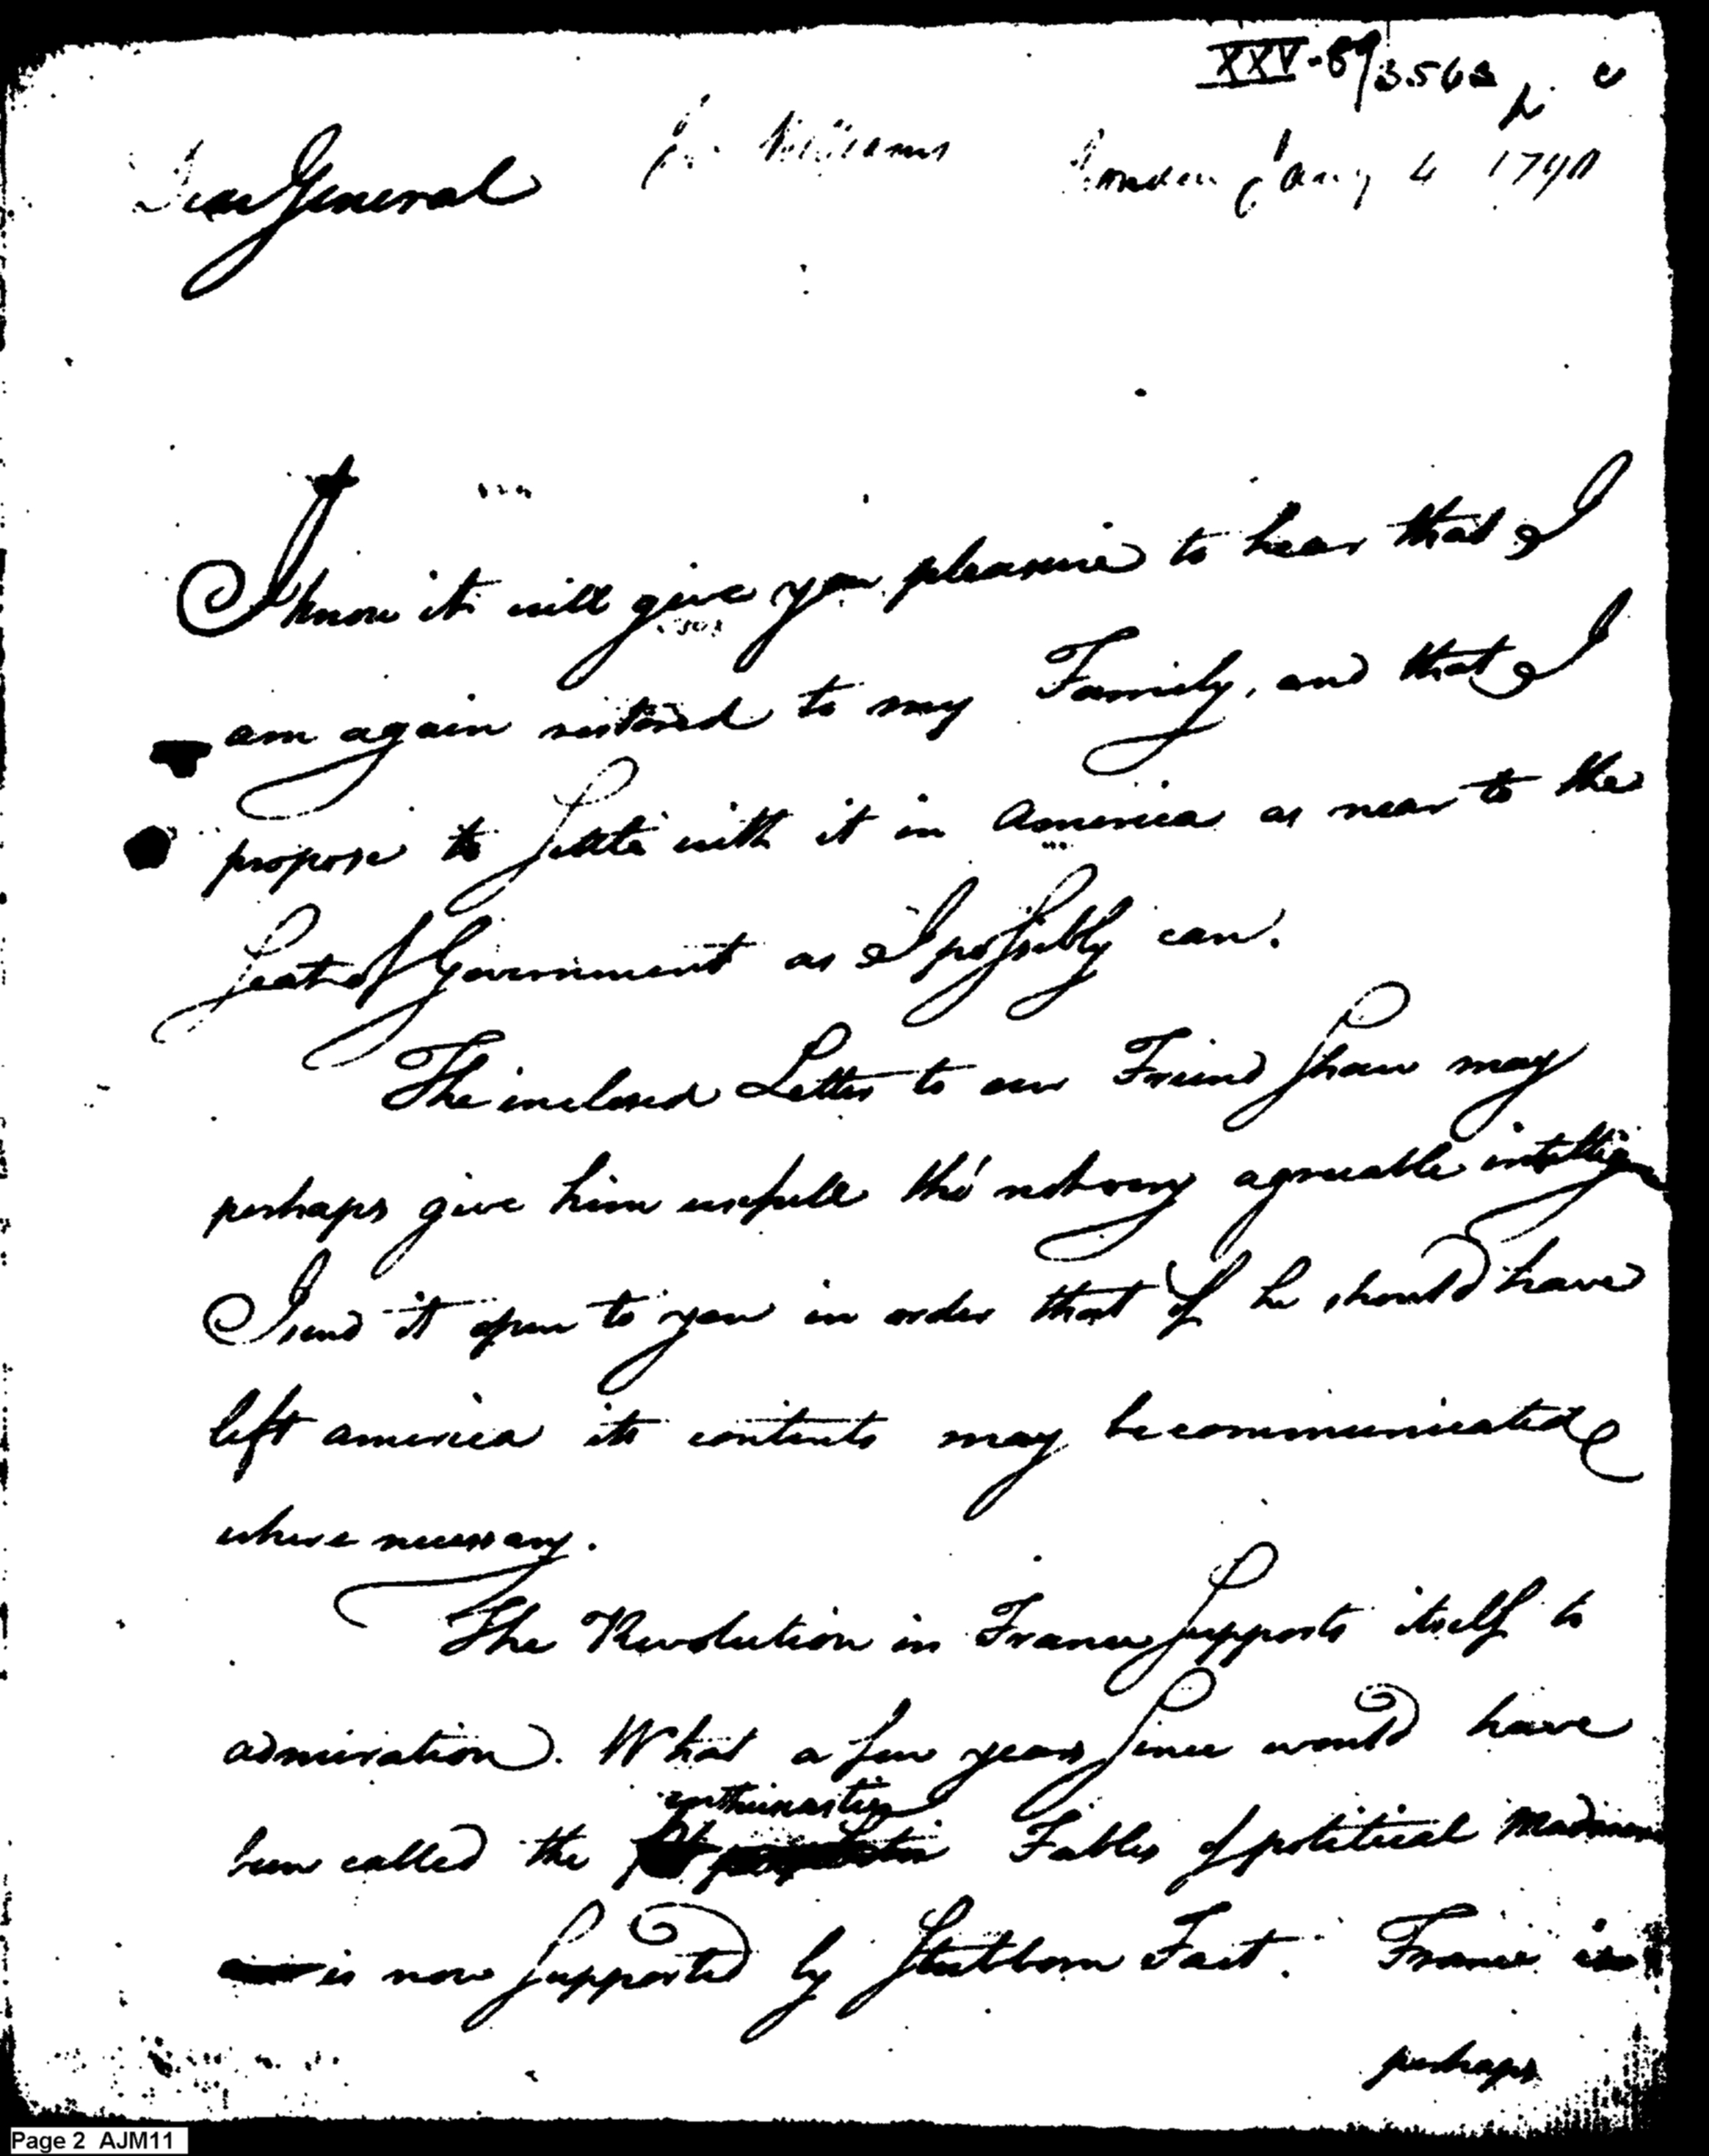 XXV-67/3563
Dear General Jn. Williams London Jany 4 1790
I know it will give you pleasure to hear that I
am again restored to my Family, and that I
propose to Settle with it in America as near to the
Seat of Government as I possibly can.
The inclosed Letter to our Friend Shaw may
perhaps give him usefull tho' not very agreeable intellig
I send it open to you in order that if he should have
left america its contents may be communicated
where necessary.
The Revolution in France Supports itself to
admiration. What a few years Since would have
enthusiastic
been called the Fables of political Madness
is now Supported by Stubborn Fact. France is
perhaps
Page 2 AJM11